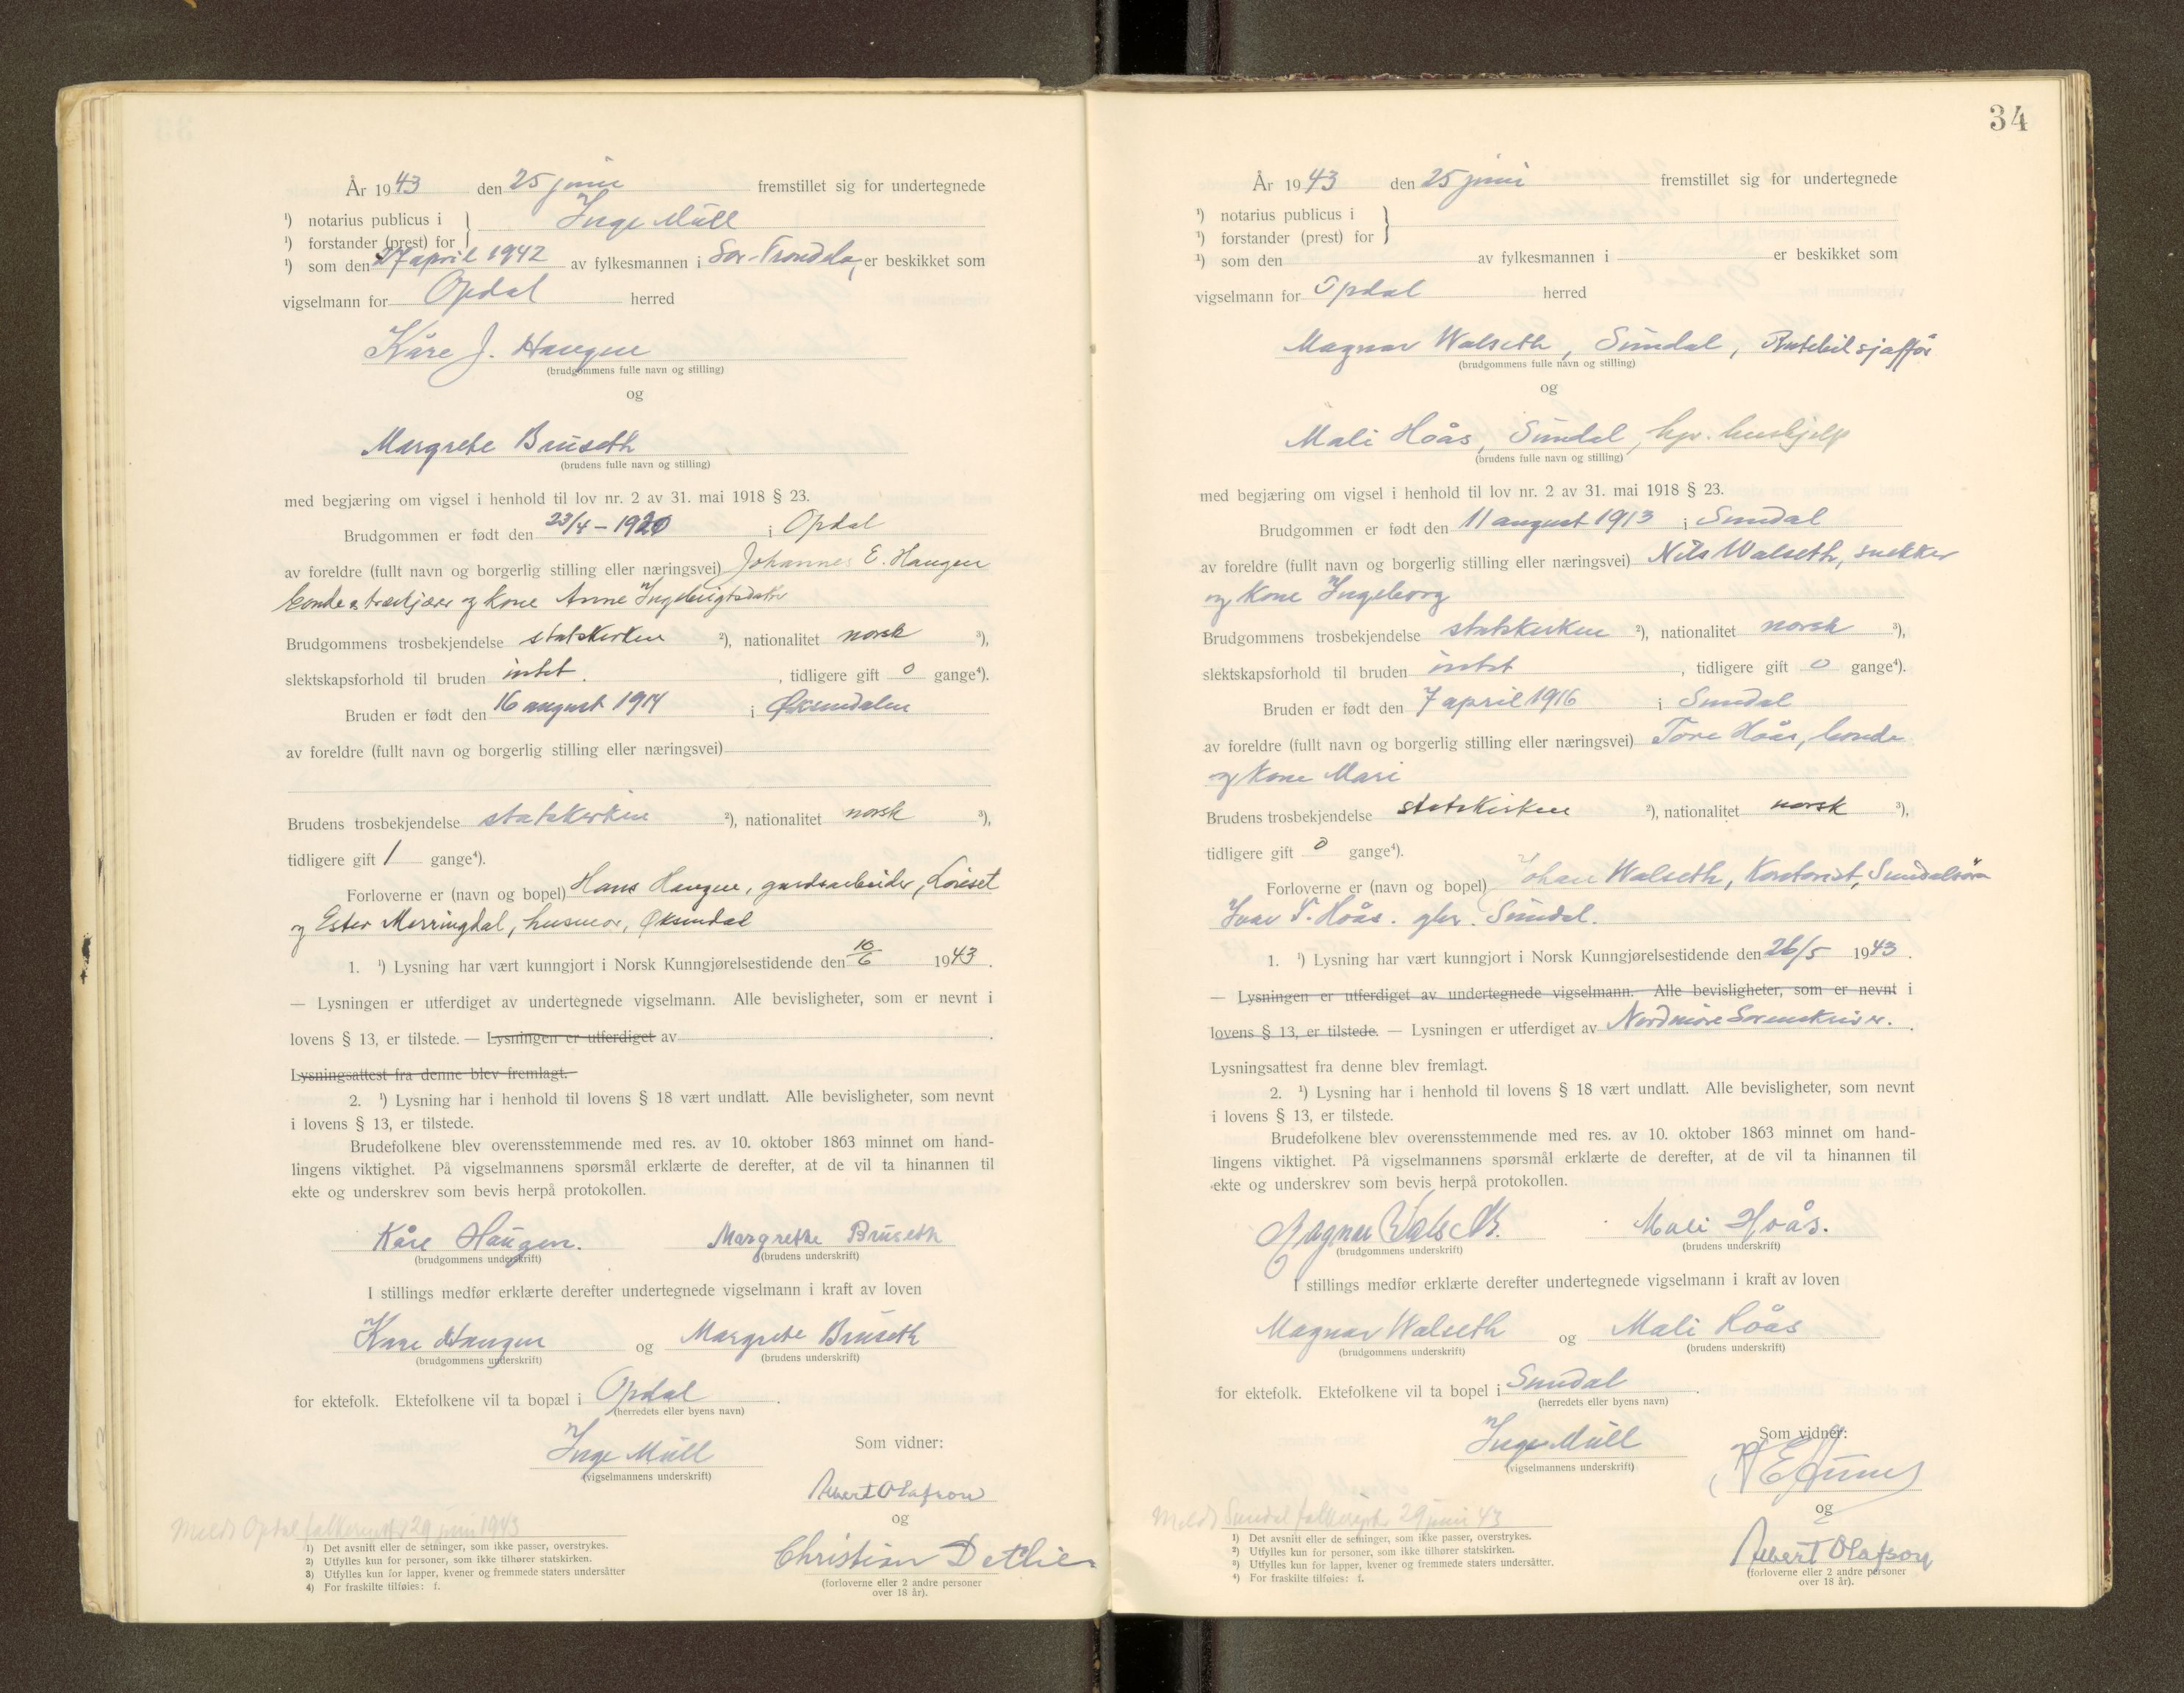 År 1943 den 25 juni fremstillet sig for undertegnede
¹) notarius publicus i } Inge Müll
¹) forstander (prest) for
¹) som den 27 april 1942 av fylkesmannen i Sør-Trøndelag er beskikket som
vigselmann for Opdal herred
Kåre J. Haugen
(brudgommens fulle navn og stilling)
og
Margrete Bruseth
(brudens fulle navn og stilling)
med begjæring om vigsel i henhold til lov nr. 2 av 31. mai 1918 § 23.
Brudgommen er født den 23/4 - 1920 i Opdal
av foreldre (fullt navn og borgerlig stilling eller næringsvei) Johannes E. Haugen
bonde og kone Anne Ingebrigtsdatter
Brudgommens trosbekjendelse statskirken ²), nationalitet norsk ³),
slektskapsforhold til bruden intet. , tidligere gift 0 gange⁴).
Bruden er født den 16 august 1914 i Øksendalen
av foreldre (fullt navn og borgerlig stilling eller næringsvei)
Brudens trosbekjendelse statskirken ²), nationalitet norsk ³),
tidligere gift 1 gange⁴).
Forloverne er (navn og bopel) Hans Haugen, gardsarbeider, Lønset
og Ester Merringdal, husmor, Øksendal
1. ¹) Lysning har vært kunngjort i Norsk Kunngjørelsestidende den 10/6 1943.
— Lysningen er utferdiget av undertegnede vigselmann. Alle bevisligheter, som er nevnt i
lovens § 13, er tilstede. — Lysningen er utferdiget av
Lysningsattest fra denne blev fremlagt.
2. ¹) Lysning har i henhold til lovens § 18 vært undlatt. Alle bevisligheter, som nevnt
i lovens § 13, er tilstede.
Brudefolkene blev overensstemmende med res. av 10. oktober 1863 minnet om hand-
lingens viktighet. På vigselmannens spørsmål erklærte de derefter, at de vil ta hinannen til
ekte og underskrev som bevis herpå protokollen.
Kåre Haugen. Margrethe Bruseth
(brudgommens underskrift) (brudens underskrift)
I stillings medfør erklærte derefter undertegnede vigselmann i kraft av loven
Kåre Haugen og Margrete Bruseth
(brudgommens underskrift) (brudens underskrift)
for ektefolk. Ektefolkene vil ta bopæl i Opdal.
(herredets eller byens navn)
Inge Müll Som vidner:
(vigselmannens underskrift)
Albert Olafson
og
Christian Dethie
(forloverne eller 2 andre personer
over 18 år).
Meldt Opdal folkeregister 29 juni 1943
1) Det avsnitt eller de setninger, som ikke passer, overstrykes.
2) Utfylles kun for personer, som ikke tilhører statskirken.
3) Utfylles kun for lapper, kvener og fremmede staters undersåtter
4) For fraskilte tilføies: f.
34
År 1943 den 25 juni fremstillet sig for undertegnede
¹) notarius publicus i }
¹) forstander (prest) for
¹) som den av fylkesmannen i er beskikket som
vigselmann for Opdal herred
Magnar Walseth, Sundal, Rutebilsjaffør
(brudgommens fulle navn og stilling)
og
Mali Hoås, Sundal, hjv. hushjelp
(brudens fulle navn og stilling)
med begjæring om vigsel i henhold til lov nr. 2 av 31. mai 1918 § 23.
Brudgommen er født den 11 august 1913 i Sundal
av foreldre (fullt navn og borgerlig stilling eller næringsvei) Nils Walseth, snekker
og kone Ingeborg
Brudgommens trosbekjendelse statskirken ²), nationalitet norsk ³),
slektskapsforhold til bruden intet , tidligere gift 0 gange⁴).
Bruden er født den 7 april 1916 i Sundal
av foreldre (fullt navn og borgerlig stilling eller næringsvei) Tore Hoås, bonde
og kone Mari
Brudens trosbekjendelse statskirken ²), nationalitet norsk ³),
tidligere gift 0 gange⁴).
Forloverne er (navn og bopel) Johan Walseth, Kontorist, Sundalsøra
Ivar T. Hoås. gbr. Sundal.
1. ¹) Lysning har vært kunngjort i Norsk Kunngjørelsestidende den 26/5 1943.
— Lysningen er utferdiget av undertegnede vigselmann. Alle bevisligheter, som er nevnt i
lovens § 13, er tilstede. — Lysningen er utferdiget av Nordmøre Sorenskriver.
Lysningsattest fra denne blev fremlagt.
2. ¹) Lysning har i henhold til lovens § 18 vært undlatt. Alle bevisligheter, som nevnt
i lovens § 13, er tilstede.
Brudefolkene blev overensstemmende med res. av 10. oktober 1863 minnet om hand-
lingens viktighet. På vigselmannens spørsmål erklærte de derefter, at de vil ta hinannen til
ekte og underskrev som bevis herpå protokollen.
Magnar Walseth. Mali Hoås.
(brudgommens underskrift) (brudens underskrift)
I stillings medfør erklærte derefter undertegnede vigselmann i kraft av loven
Magnar Walseth og Mali Hoås
(brudgommens underskrift) (brudens underskrift)
for ektefolk. Ektefolkene vil ta bopel i Sundal.
(herredets eller byens navn)
Inge Müll Som vidner:
(vigselmannens underskrift)
og
Albert Olafson
(forloverne eller 2 andre personer
over 18 år).
Meldt Sundal folkeregister 29 juni 43
1) Det avsnitt eller de setninger, som ikke passer, overstrykes.
2) Utfylles kun for personer, som ikke tilhører statskirken.
3) Utfylles kun for lapper, kvener og fremmede staters undersåtter.
4) For fraskilte tilføies: f.